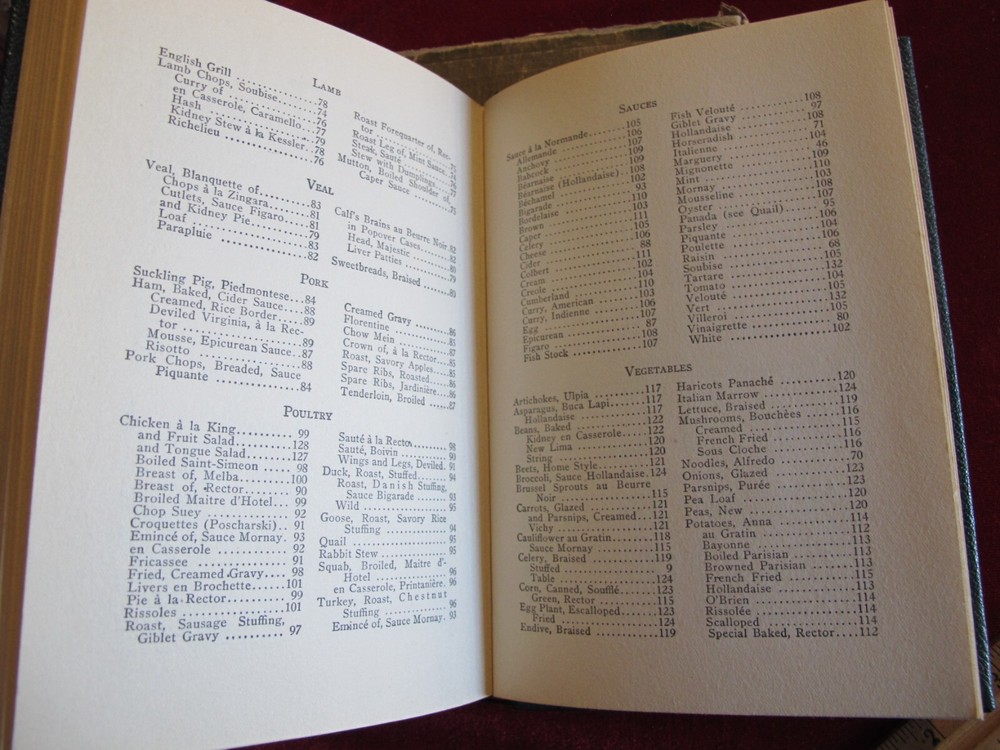 LAMB
English Grill .......... 78
Lamb Chops, Soubise........ 74
Curry of .......... 76
en Casserole, Caramello.. 77
Hash .......... 79
Kidney Stew à la Kessler .. 78
Richelieu .......... 76
Roast Forequarter of, Rec-
tor
Roast Leg of, Mint Sauce
Steak, Sauté
Stew with Dumplings
Mutton, Boiled Shoulder of,
Caper Sauce
VEAL
Veal, Blanquette of........ 83
Chops à la Zingara ....... 81
Cutlets, Sauce Figaro .... 81
and Kidney Pie .......... 79
Loaf .......... 83
Parapluie .......... 82
Calf's Brains au Beurre Noir. 82
in Popover Cases......... 82
Head, Majestic .......... 80
Liver Patties .......... 79
Sweetbreads, Braised ...... 80
PORK
Suckling Pig, Piedmontese.... 84
Ham, Baked, Cider Sauce.... 88
Creamed, Rice Border..... 89
Deviled Virginia, à la Rec-
tor .......... 89
Mousse, Epicurean Sauce.. 87
Risotto .......... 88
Pork Chops, Breaded, Sauce
Piquante .......... 84
Creamed Gravy .......... 86
Florentine .......... 85
Chow Mein .......... 87
Crown of, à la Rector..... 85
Roast, Savory Apples...... 85
Spare Ribs, Roasted....... 86
Spare Ribs, Jardinière..... 86
Tenderloin, Broiled ....... 87
POULTRY
Chicken à la King.......... 99
and Fruit Salad.......... 128
and Tongue Salad........ 127
Boiled Saint-Simeon ...... 98
Breast of, Melba......... 100
Breast of, Rector......... 90
Broiled Maitre d'Hotel.... 99
Chop Suey .......... 92
Croquettes (Poscharski).. 91
Emincé of, Sauce Mornay. 93
en Casserole .......... 92
Fricassee .......... 91
Fried, Creamed Gravy..... 98
Livers en Brochette....... 101
Pie à la Rector.......... 99
Rissoles .......... 101
Roast, Sausage Stuffing,
Giblet Gravy .......... 97
Sauté à la Rector......... 98
Sauté, Boivin .......... 90
Wings and Legs, Deviled. 91
Duck, Roast, Stuffed........ 94
Roast, Danish Stuffing,
Sauce Bigarade ........ 93
Wild .......... 95
Goose, Roast, Savory Rice
Stuffing .......... 94
Quail .......... 95
Rabbit Stew .......... 95
Squab, Broiled, Maitre d'-
Hotel .......... 96
en Casserole, Printanière.. 96
Turkey, Roast, Chestnut
Stuffing .......... 96
Emincé of, Sauce Mornay. 93
SAUCES
Sauce à la Normande........ 105
Allemande .......... 106
Anchovy .......... 107
Babcock .......... 109
Béarnaise .......... 109
Béarnaise (Hollandaise) .. 108
Béchamel .......... 102
Bigarade .......... 93
Bordelaise .......... 110
Brown .......... 103
Caper .......... 111
Celery .......... 105
Cheese .......... 106
Cider .......... 88
Colbert .......... 111
Cream .......... 102
Creole .......... 104
Cumberland .......... 110
Curry, American .......... 103
Curry, Indienne .......... 106
Egg .......... 107
Epicurean .......... 87
Figaro .......... 108
Fish Stock .......... 107
Fish Velouté .......... 108
Giblet Gravy .......... 97
Hollandaise .......... 108
Horseradish .......... 71
Italienne .......... 104
Marguery .......... 46
Mignonette .......... 109
Mint .......... 110
Mornay .......... 103
Mousseline .......... 108
Oyster .......... 107
Panada (see Quail) ....... 95
Parsley .......... 106
Piquante .......... 104
Poulette .......... 106
Raisin .......... 68
Soubise .......... 105
Tartare .......... 132
Tomato .......... 104
Velouté .......... 104
Vert .......... 105
Villeroi .......... 132
Vinaigrette .......... 80
White .......... 102
VEGETABLES
Artichokes, Ulpia .......... 117
Asparagus, Buca Lapi....... 117
Hollandaise .......... 117
Beans, Baked .......... 122
Kidney en Casserole...... 122
New Lima .......... 120
String .......... 120
Beets, Home Style.......... 121
Broccoli, Sauce Hollandaise. 124
Brussel Sprouts au Beurre
Noir .......... 115
Carrots, Glazed .......... 121
and Parsnips, Creamed... 121
Vichy .......... 121
Cauliflower au Gratin...... 118
Sauce Mornay .......... 115
Celery, Braised .......... 119
Stuffed .......... 9
Table .......... 124
Corn, Canned, Soufflé...... 123
Green, Rector .......... 115
Egg Plant, Escalloped....... 123
Fried .......... 124
Endive, Braised .......... 119
Haricots Panaché .......... 120
Italian Marrow .......... 124
Lettuce, Braised .......... 119
Mushrooms, Bouchées ...... 116
Creamed .......... 115
French Fried .......... 116
Sous Cloche .......... 116
Noodles, Alfredo .......... 70
Onions, Glazed .......... 123
Parsnips, Purée .......... 123
Pea Loaf .......... 120
Peas, New .......... 120
Potatoes, Anna .......... 114
au Gratin .......... 112
Bayonne .......... 113
Boiled Parisian .......... 113
Browned Parisian ........ 113
French Fried .......... 115
Hollandaise .......... 113
O'Brien .......... 114
Rissolée .......... 114
Scalloped .......... 114
Special Baked, Rector.... 112